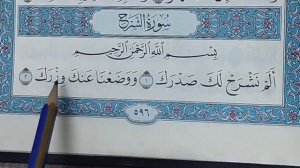 سُورَةُ الشَّرْحِ
بِسْمِ اللَّهِ الرَّحْمَٰنِ الرَّحِيمِ
أَلَمْ نَشْرَحْ لَكَ صَدْرَكَ ١ وَوَضَعْنَا عَنكَ وِزْرَكَ ٢
٥٩٦